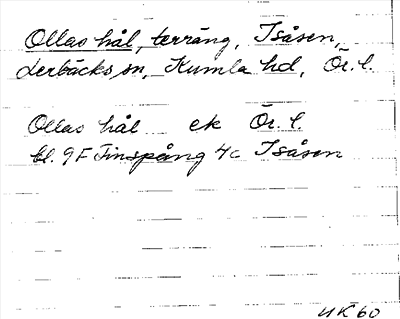 Ollas hål, terräng, Isåsen,
Lerbäcks sn, Kumla hd, Ör. l.
Ollas hål ek Ör. l.
bl. 9F Finspång 4c Isåsen
UK 60